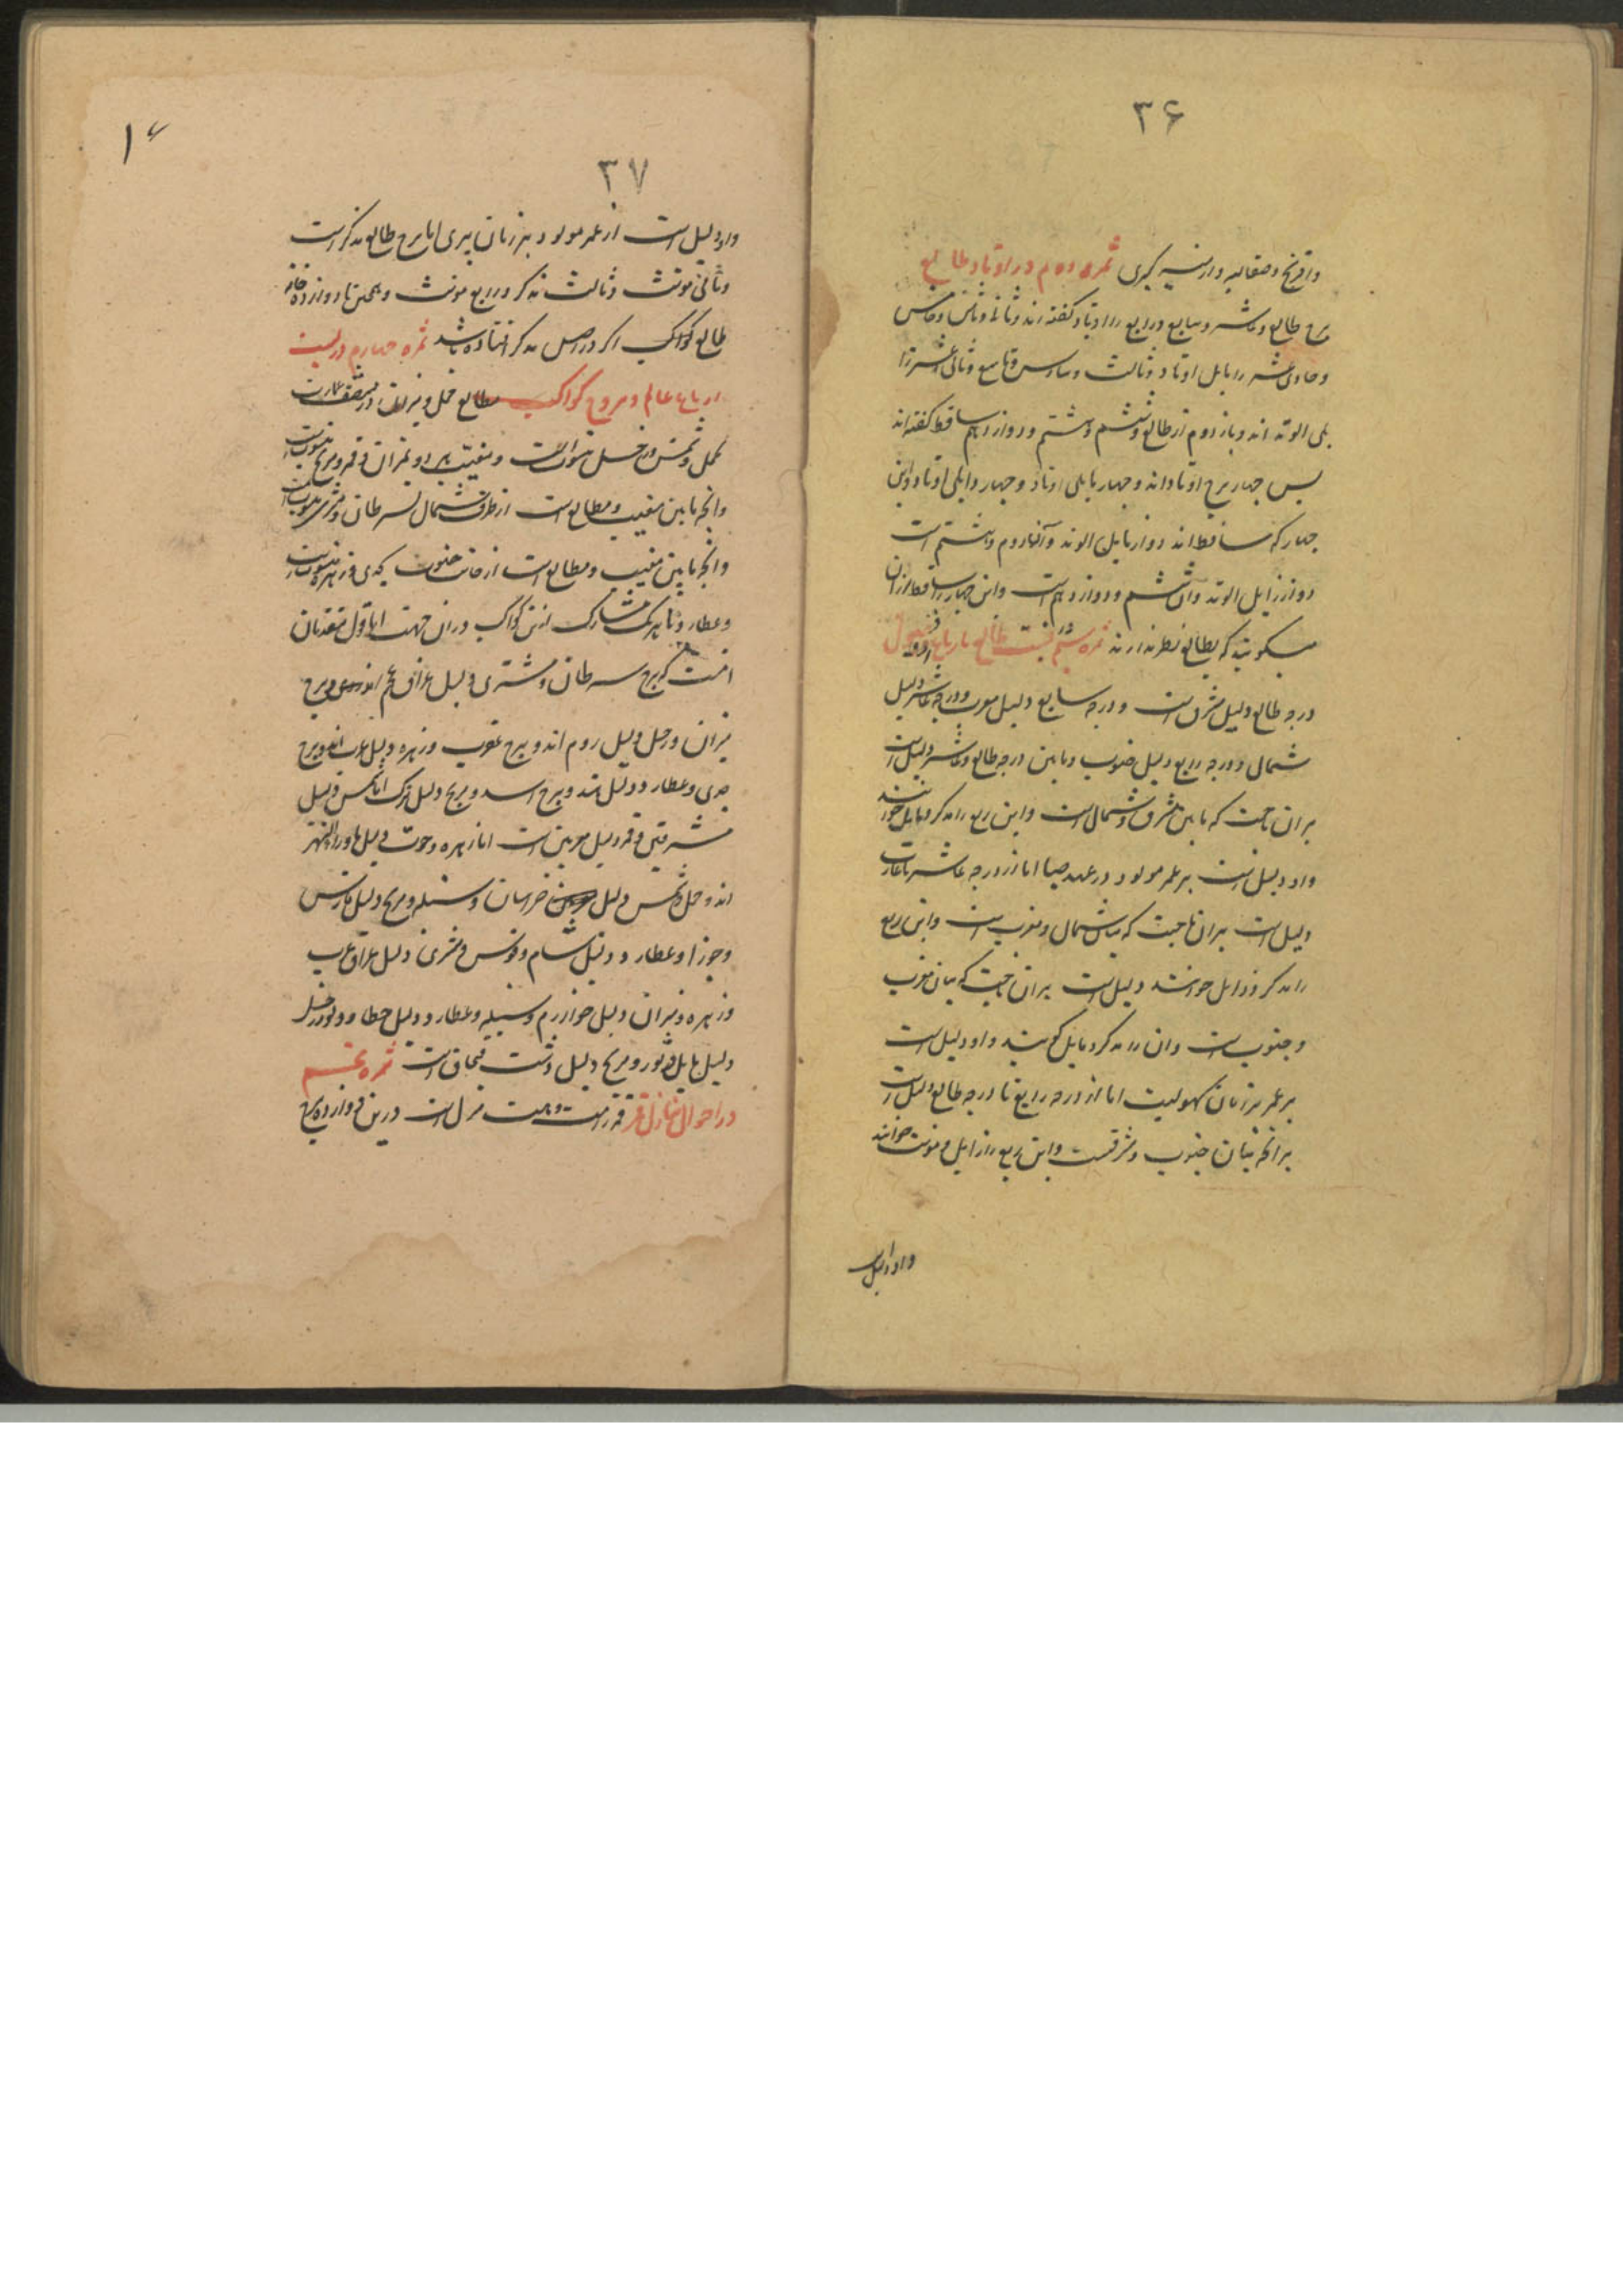 ۳۶
وافرنج و صقالبه و ارمنیه کبری ثمره دوم در اوتاد طالع
برج طالع و عاشر و سابع و رابع را اوتاد گفته اند و ثانی و ثامن و خامس
و حادی عشر را مایل اوتاد و ثالث و سادس و تاسع و ثانی عشر را
الوتد اند و باز دوم از طالع و ششم و هشتم و دوازدهم ساقط گفته اند
پس چهار برج اوتاد اند و چهار مایلی اوتاد و چهار زایلی اوتاد و این
چهار که ساقط اند دو از مایل الوتد و آنها دوم و هشتم است
دو از زایل الوتد و آن ششم و دوازدهم است و این چهار را ساقط از آن
میگویند که بطالع نظر ندارند ثمره سیم در قسمت طالع بارباع
درجه طالع دلیل مشرق است و درجه سابع دلیل مغرب و درجه عاشر دلیل
شمال و درجه رابع دلیل جنوب و مابین درجه طالع و عاشر دلیل است
بران ناحیت که مابین مشرق و شمال است و این ربع را مذکر و مایل خوانند
و او دلیل است بر عمر مولود در عهد صبا اما از درجه عاشر تا غارب
دلیل است بران ناحیت که میان شمال و مغرب است و این ربع
را مذکر و زایل خوانند دلیل است بران ناحیت که میان مغرب
و جنوب است و ان را مذکر و مایل گویند و او دلیل است
بر عمر بزمان کهولیت اما از درجه رابع تا درجه طالع دلیل است
برانچه میان جنوب و مشرقست و این ربع را زایل و مونث خوانند
و او دلیل
۱۶
۳۷
و او دلیل است از عمر مولود بر زمان پیری اما برج طالع مذکر است
و ثانی مونث و ثالث مذکر و رابع مونث و همچنین تا دوازده خانه
طالع کواکب اگر در اصل مذکر افتاده باشد ثمره چهارم در نسبت
ارباع عالم و بروج کواکب مطالع حمل و میزان
بحمل و شمس و زحل منسوب است و مغیب بمیزان و قمر و مریخ منسوب است
و انچه مابین مغیب و مطالع است از طرف شمال بسرطان و مشتری منسوب است
و انچه مابین مغیب و مطالع است از جانب جنوب بجدی و زهره منسوب است
و عطارد با هر یک مشارک این کواکب در ان جهت اما قول متقدمان
انست که برج سرطان و مشتری دلیل عراق عجم اند و برج
میزان و زحل دلیل روم اند و برج عقرب و زهره دلیل عرب اند و برج
جدی و عطارد دلیل هند و برج اسد و مریخ دلیل ترک اما شمس دلیل
مشرقین و قمر دلیل مغربین است اما زهره و حوت دلیل ماوراءالنهر
اند و حمل و شمس دلیل خراسان و سنبله و مریخ دلیل فارس
و جوزا و عطارد دلیل شام و قوس و مشتری دلیل عراق عرب
و زهره و میزان دلیل خوارزم و سنبله و عطارد دلیل خطا و دلو و زحل
دلیل بابل و ثور و مریخ دلیل دشت قبچاق است ثمره پنجم
در احوال منازل قمر قمر را بیست و هشت منزل است درین دوازده برج